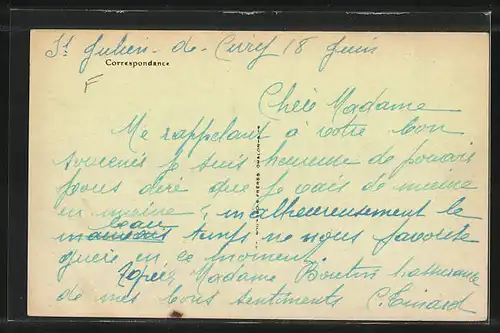 St Julien-de-Civry 18 Juin
Correspondance
F
Chère Madame
Me rappelant à votre bon
souvenir je suis heureuse de pouvoir
vous dire que je vais de mieux
en mieux, malheureusement le
mauvais beau temps ne nous favorise
guère en ce moment.
Madame Boutin l'assurance
de mes bons sentiments